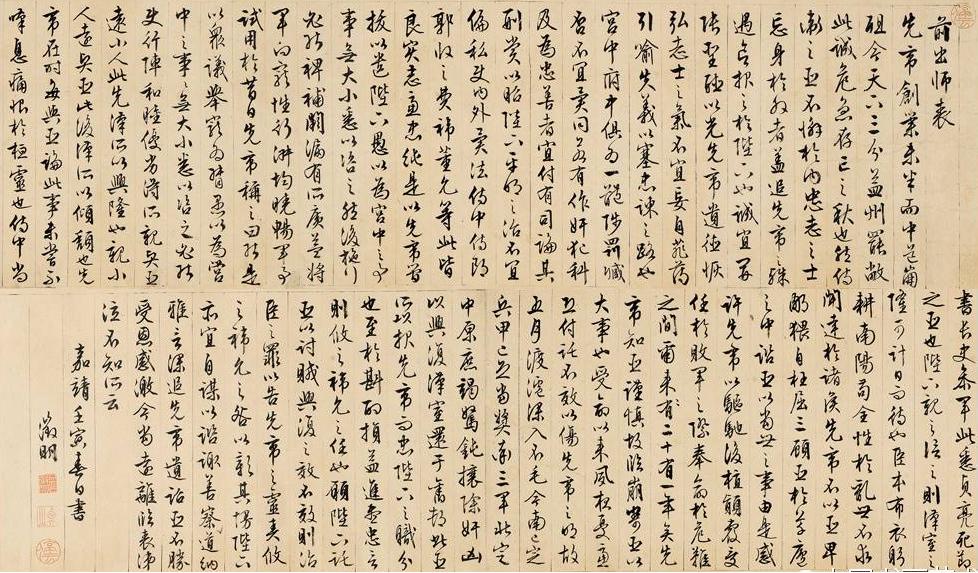 前出師表
先帝創業未半而中道崩
殂今天下三分益州罷敝
此誠危急存亡之秋也然侍
衛之臣不懈於內忠志之士
忘身於外者蓋追先帝之殊
遇欲報之於陛下也誠宜開
張聖聽以光先帝遺德恢
弘志士之氣不宜妄自菲薄
引喻失義以塞忠諫之路也
宮中府中俱為一體陟罰臧
否不宜異同若有作奸犯科
及為忠善者宜付有司論其
刑賞以昭陛下平明之治不宜
偏私使內外異法侍中侍郎
郭攸之費禕董允等此皆
良實志慮忠純是以先帝簡
拔以遺陛下愚以為宮中之事
事無大小悉以咨之然後施行
必能裨補闕漏有所廣益將
軍向寵性行淑均曉暢軍事
試用於昔日先帝稱之曰能是
以眾議舉寵為督愚以為營
中之事事無大小悉以咨之必能
使行陣和睦優劣得所親賢臣
遠小人此先漢所以興隆也親小
人遠賢臣此後漢所以傾頹也先
帝在時每與臣論此事未嘗不
嘆息痛恨於桓靈也侍中尚
書長史參軍此悉貞亮死節
之臣也陛下親之信之則漢室之
隆可計日而待也臣本布衣躬
耕南陽苟全性於亂世不求
聞達於諸侯先帝不以臣卑
鄙猥自枉屈三顧臣於草廬
之中諮臣以當世之事由是感
許先帝以驅馳後值顛覆受
任於敗軍之際奉命於危難
之間爾來二十有一年矣先
帝知臣謹慎故臨崩寄臣以
大事也受命以來夙夜憂慮
恐付託不效以傷先帝之明故
五月渡瀘深入不毛今南已定
兵甲已足當獎率三軍北定
中原庶竭駑鈍攘除奸凶
以興復漢室還于舊都此臣
所以報先帝而忠陛下之職分
也至於斟酌損益進盡忠言
則攸之禕允之任也願陛下託
臣以討賊興復之效不效則治
臣之罪以告先帝之靈責攸
之禕允之咎以彰其慢陛下
亦宜自謀以諮諏善道察納
雅言深追先帝遺詔臣不勝
受恩感激今當遠離臨表涕
泣不知所云
嘉靖壬寅春日書
徵明